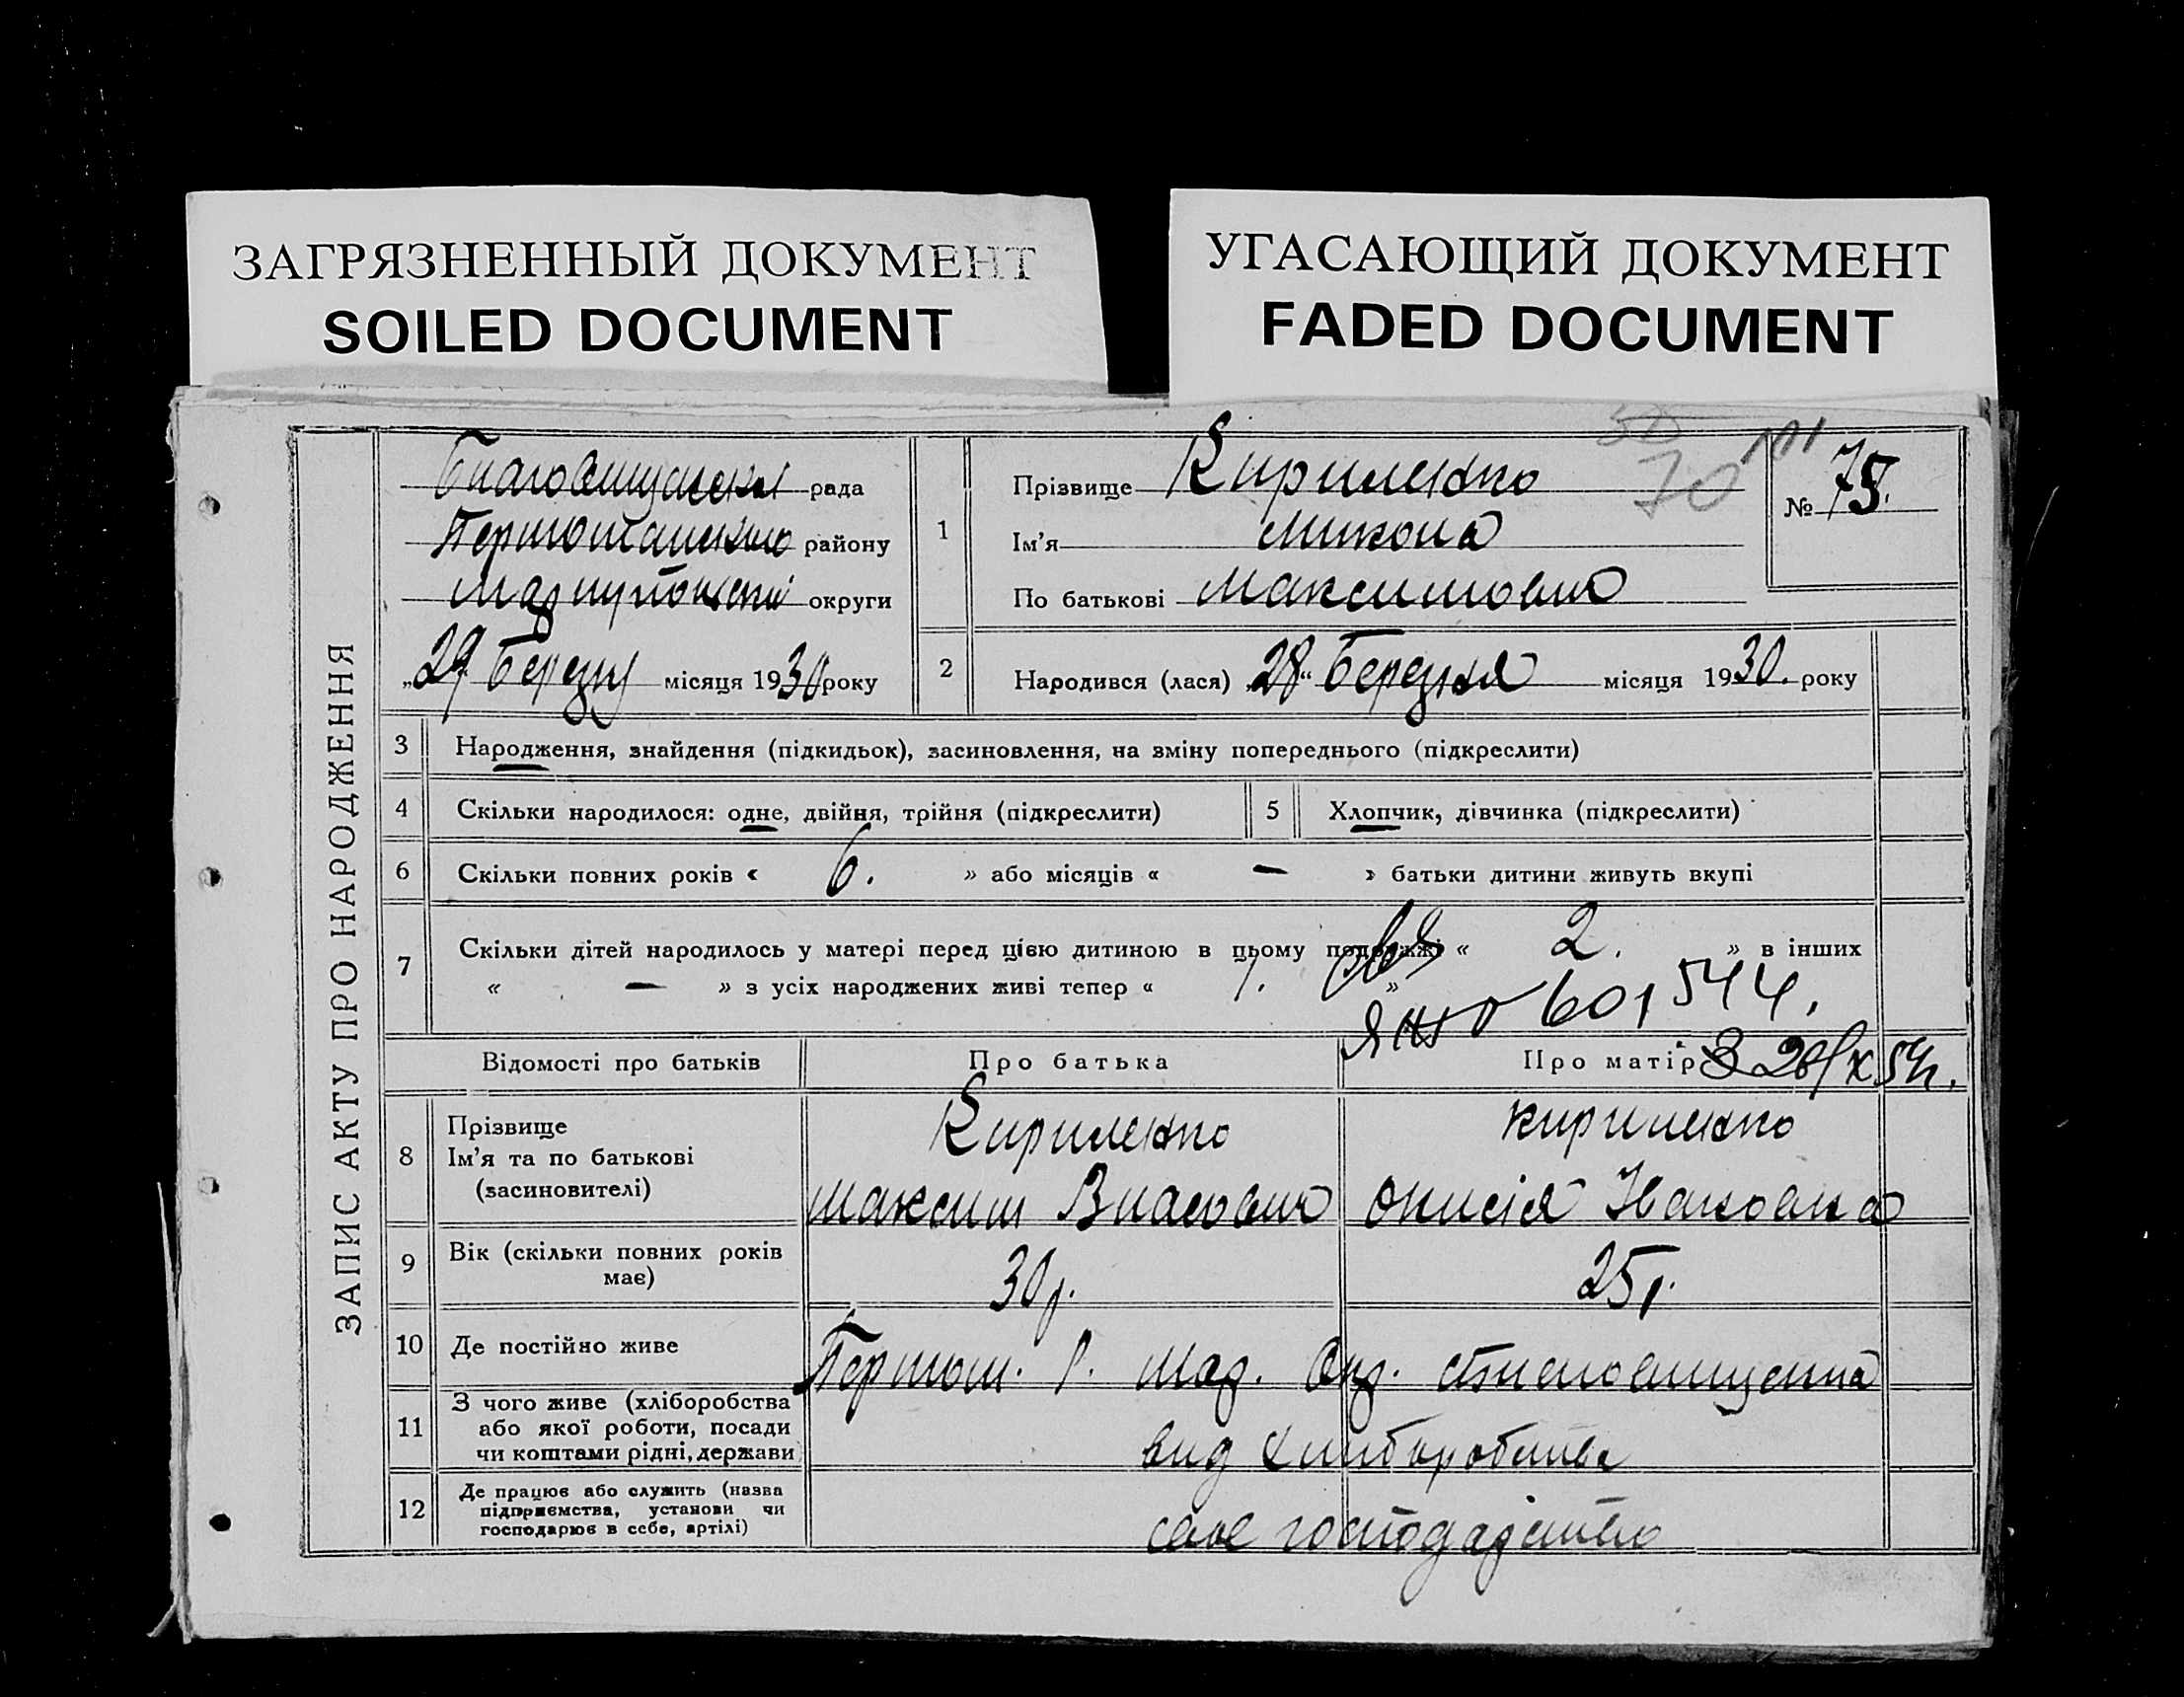 ЗАГРЯЗНЕННЫЙ ДОКУМЕНТ
SOILED DOCUMENT
УГАСАЮЩИЙ ДОКУМЕНТ
FADED DOCUMENT
ЗАПИС АКТУ ПРО НАРОДЖЕННЯ
рада
району
округи
„29 Березня місяця 1930 року
1
Прізвище Кириленко
Ім’я Микола
По батькові Максимович
70
№ 75.
2
Народився (лася) „28“ Березня місяця 1930. року
3 Народження, знайдення (підкидьок), засиновлення, на зміну попереднього (підкреслити)
4 Скільки народилося: одне, двійня, трійня (підкреслити)
5 Хлопчик, дівчинка (підкреслити)
6 Скільки повних років « 6. » або місяців « — » батьки дитини живуть вкупі
7 Скільки дітей народилось у матері перед цією дитиною в цьому подружжі « 2. » в інших
« — » з усіх народжених живі тепер « 1. »
601544.
Відомості про батьків
Про батька
Про матір
8 Прізвище
Ім’я та по батькові
(засиновителі)
Кириленко
Максим Власович
Кириленко
Онисія Івановна
9 Вік (скільки повних років
має)
30 р.
25 р.
10 Де постійно живе
11 З чого живе (хліборобства
або якої роботи, посади
чи коштами рідні, держави
від хліборобства
12 Де працює або служить (назва
підприємства, установи чи
господарює в себе, артілі)
своє господарство